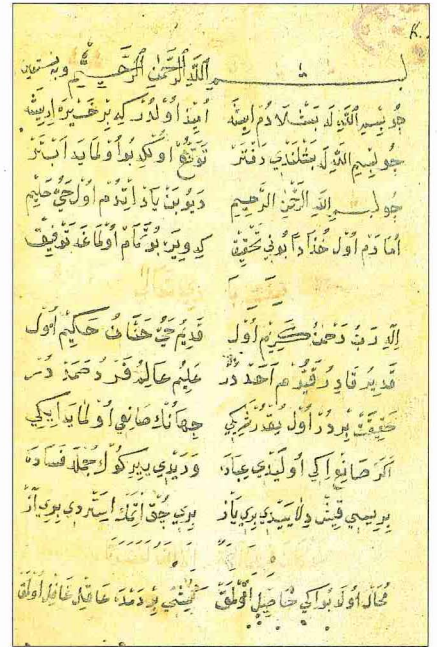 بسم الله الرحمن الرحيم وبه نستعين
جو بسم الله له بشلادم ايشه اميد اولدر كه بر خيره اريشه
جو بسم الله له بشلندي دفتر توقع اولكه بو اولمايه ابتر
جو بسم الله الرحمن الرحيم ديوبن ياد اتدم اول حي حليم
اما دم اول خدادا بوني تحقيق كه ويره بو تمام اولماغه توفيق
اله رب رحمن كريم اول قديم حي حنان حكيم اول
قدير قادر قيوم احد در عليم عالم فرد صمد در
حقيقت بردر اول يقدر شريكي جهانك صانعي اولمايه ايكي
اكر صانع ايكي اوليدي عباده وريدي يير كوك جمله فساده
بريسي قيش دلاييدي بري ياز بري جق اتمك استردي بري از
محال اولا بو ايكي حاصل اولمق بردمده عاقل غافل اولمق